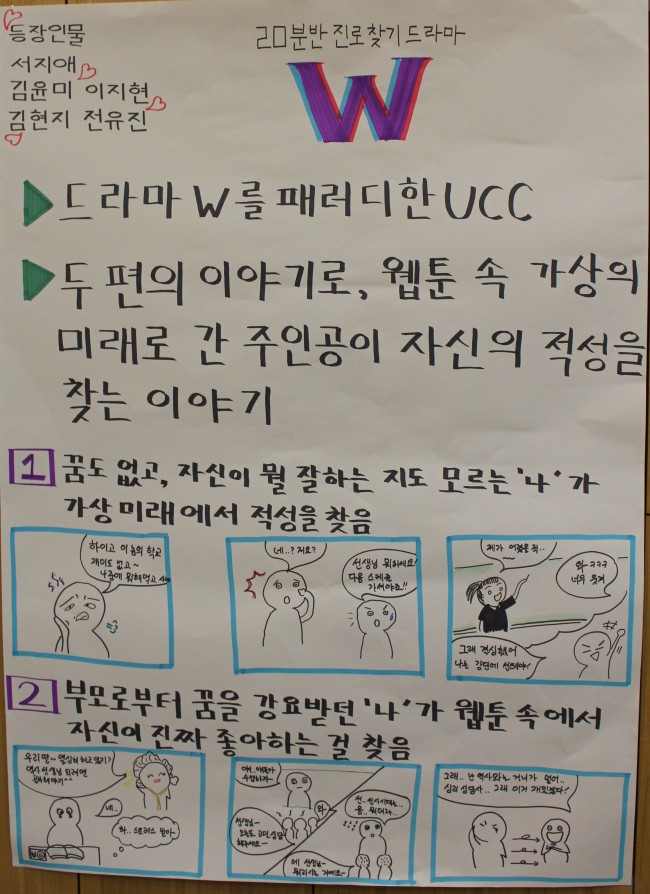 등장인물
서지애
김윤미 이지현
김현지 전유진
20분반 진로찾기 드라마
W
드라마 W를 패러디한 UCC
두 편의 이야기로, 웹툰 속 가상의
미래로 간 주인공이 자신의 적성을
찾는 이야기
1 꿈도 없고, 자신이 뭘 잘하는 지도 모르는 '나'가
가상 미래에서 적성을 찾음
하이고 이놈의 학교
재미도 없고~
나중에 뭐해먹고
네..? 저요?
선생님 뭐하세요!
다음 스케줄
가셔야죠!!
제가 어렸을 적..
와 ㅋㅋㅋ
너무 웃겨
그래 결심했어
나는 강단에 선테야!
2 부모로부터 꿈을 강요받던 '나'가 웹툰 속에서
자신이 진짜 좋아하는 걸 찾음
우리 딸~ 열심히 하고 있지?
역사 선생님 되려면
네..
하.. 스트레스 받아..
와
선생님~
그래.. 난 역사와는 거리가 멀어..
심리 상담사.. 그래 이거 재밌겠다!